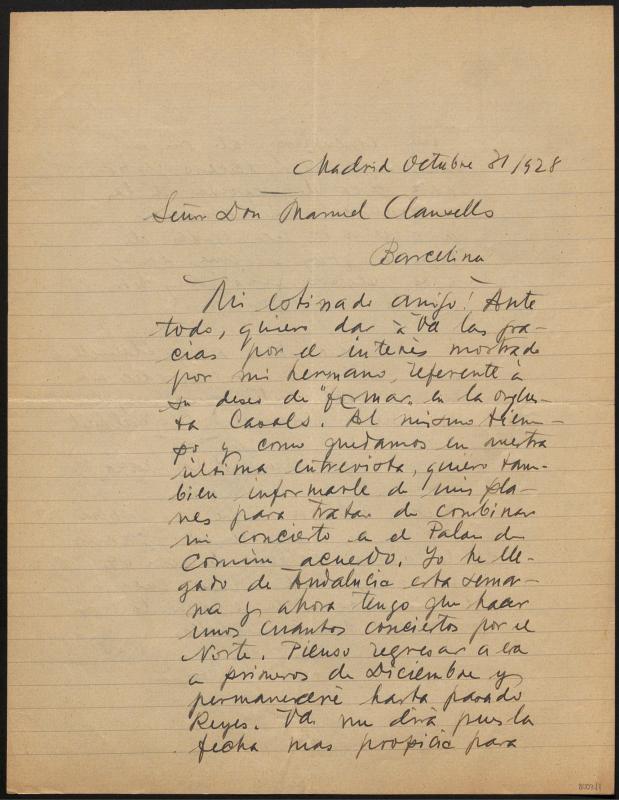 Madrid Octubre 31/928
Señor Don Manuel Clausells
Barcelona
Mi estimado amigo! Ante
todo, quiero dar à Vd las gra-
cias por el interès mostrado
por mi hermano, referente à
su deseo de "formar" en la orques-
ta Casals. Al mismo tiem-
po y como quedamos en nuestra
ùltima entrevista, quiero tam-
bien informarle de mis pla-
nes para tratar de combinar
mi concierto en el Palau de
comùn acuerdo. Yo he lle-
gado de Andalucia esta sema-
na y ahora tengo que hacer
unos cuantos conciertos por el
Norte. Pienso regresar a esa
a primeros de Diciembre y
permanecerè hasta pasado
Reyes. Vd. me dirà pues la
fecha mas propicia para